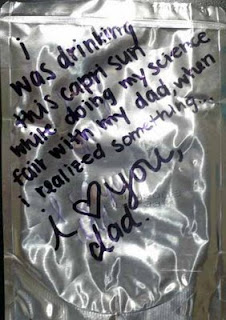 i
was drinking
this capri sun
while doing my science
fair with my dad, when
i realized something...
i ♡ you,
dad.